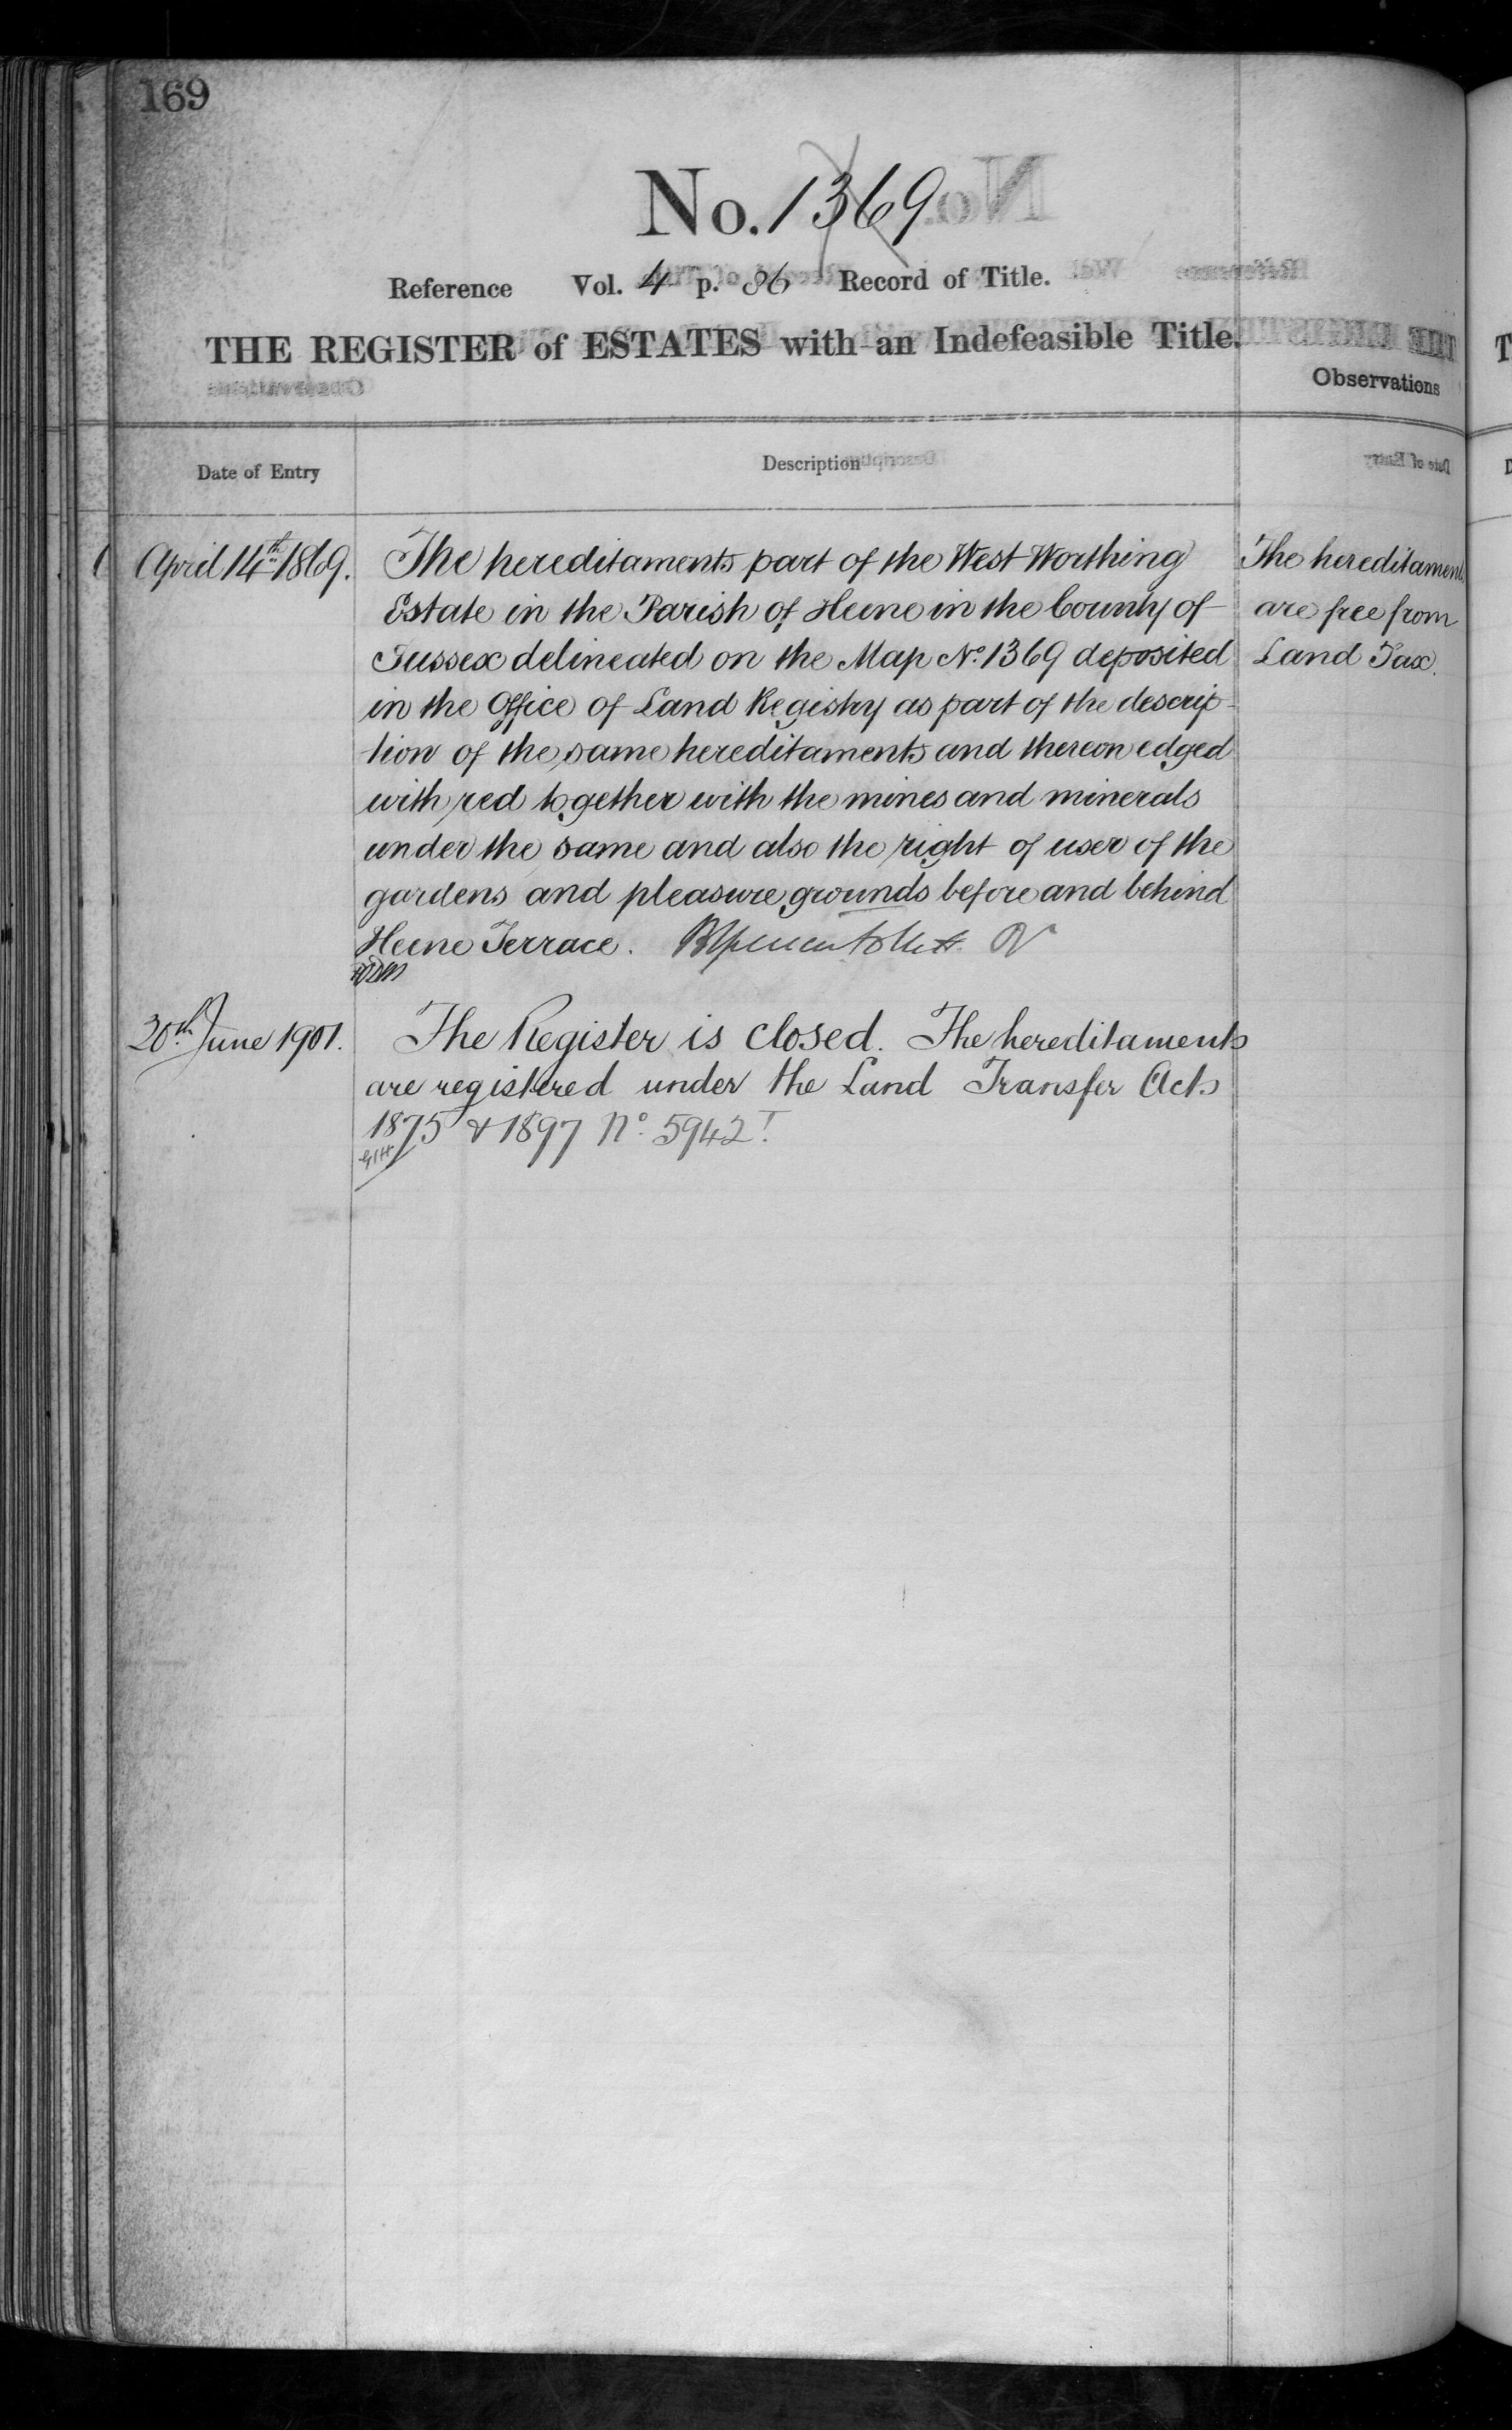 169
No. 1369
Reference Vol. 4 p. 86 Record of Title.
THE REGISTER of ESTATES with an Indefeasible Title.
Observations
Date of Entry
Description
April 14th 1869.
The hereditaments part of the West Worthing
Estate in the Parish of Heene in the County of
Sussex delineated on the Map No. 1369 deposited
in the Office of Land Registry as part of the descrip-
-tion of the same hereditaments and thereon edged
with red together with the mines and minerals
under the same and also the right of user of the
gardens and pleasure grounds before and behind
Heene Terrace.
The hereditaments
are free from
Land Tax.
June 1901.
The Register is closed. The hereditaments
are registered under the Land Transfer Acts
1875 & 1897 No. 5942